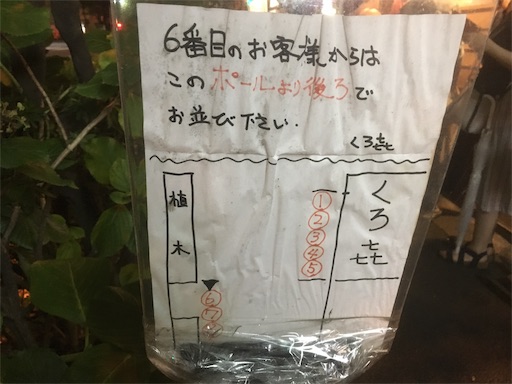 6番目のお客様からは
このポールより後ろで
お並び下さい.
くろ㐂
植木
①
②
③
④
⑤
くろ㐂
⑥
⑦